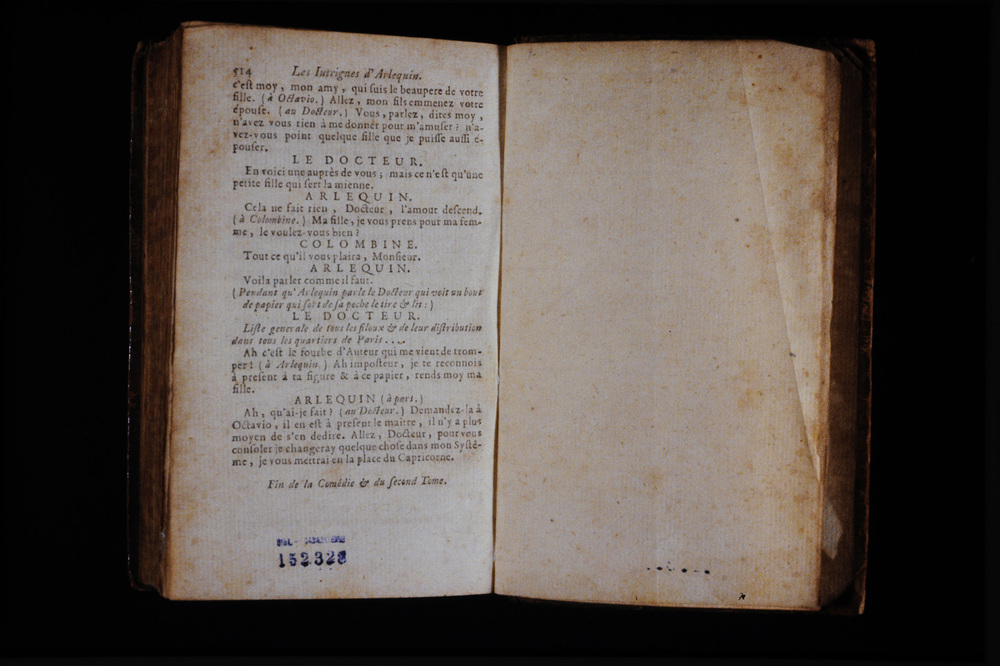 514 Les Intrignes d'Arlequin.
c'est moy, mon amy, qui suis le beaupere de votre
fille. (à Octavio.) Allez, mon fils emmenez votre
épouse. (au Docteur.) Vous, parlez, dites moy,
n'avez vous rien à me donner pour m'amuser? n'a-
vez-vous point quelque fille que je puisse aussi é-
pouser.
LE DOCTEUR.
En voici une auprès de vous; mais ce n'est qu'une
petite fille qui sert la mienne.
ARLEQUIN.
Cela ne fait rien, Docteur, l'amour descend.
(à Colombine.) Ma fille, je vous prens pour ma fem-
me, le voulez-vous bien?
COLOMBINE.
Tout ce qu'il vous plaira, Monsieur.
ARLEQUIN.
Voila parler comme il faut.
(Pendant qu'Arlequin parle le Docteur qui voit un bout
de papier qui sort de sa poche le tire & lit:)
LE DOCTEUR.
Liste generale de tous les filoux & de leur distribution
dans tous les quartiers de Paris....
Ah c'est le fourbe d'Auteur qui me vient de trom-
per! (à Arlequin.) Ah imposteur, je te reconnois
à present à ta figure & à ce papier, rends moy ma
fille.
ARLEQUIN (à part.)
Ah, qu'ai-je fait? (au Docteur.) Demandez-la à
Octavio, il en est à present le maitre, il n'y a plus
moyen de s'en dedire. Allez, Docteur, pour vous
consoler je changeray quelque chose dans mon Systê-
me, je vous mettrai en la place du Capricorne.
Fin de la Comédie & du second Tome.
152328